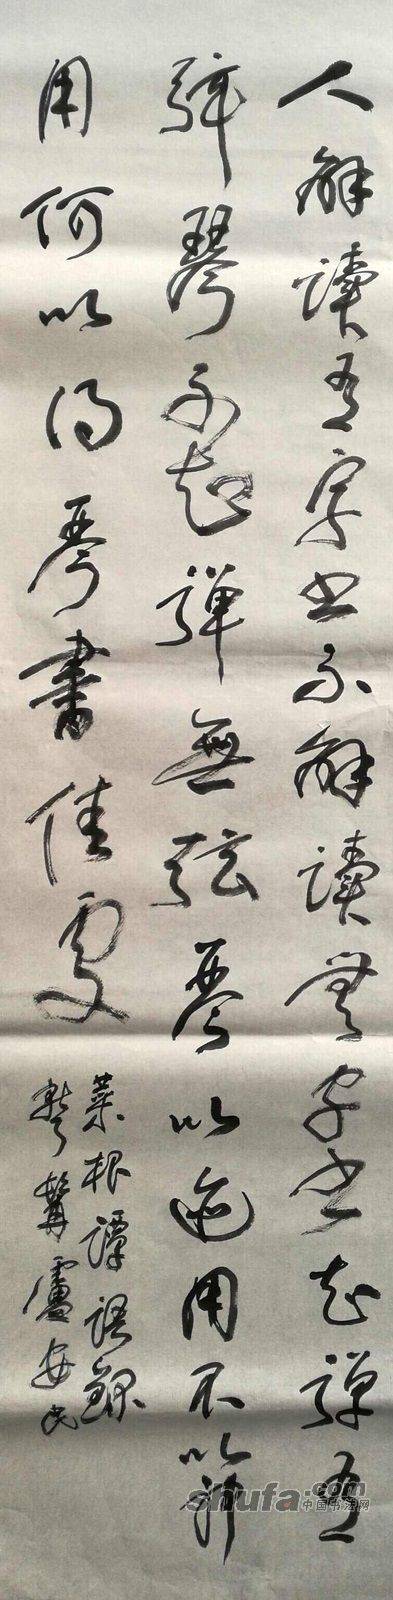 人解讀有字书不解讀無字书知弹有
弦琴不知弹無弦琴以迹用不以神
用何以得琴書佳處
菜根譚語錄
盧安民
shufa.com
中国书法网